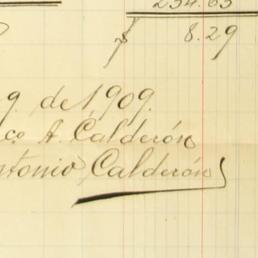 234.63
$ 8.29
9. de 1909.
co A. Calderón
ntonio Calderón